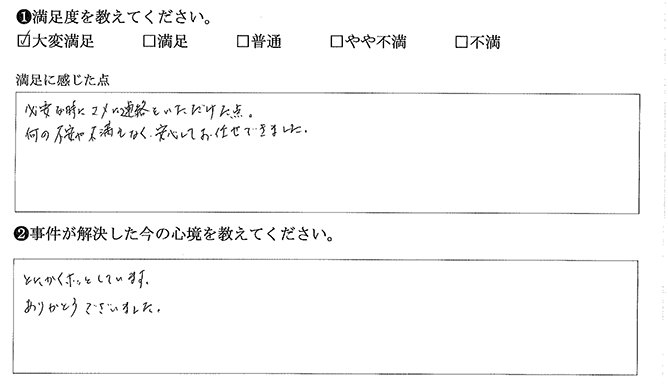 ❶満足度を教えてください。
☑大変満足 □満足 □普通 □やや不満 □不満
満足に感じた点
必要な時にコメに連絡をいただけた点。
何の不安や不満もなく、安心してお任せできました。
❷事件が解決した今の心境を教えてください。
とにかくホッとしています。
ありがとうございました。